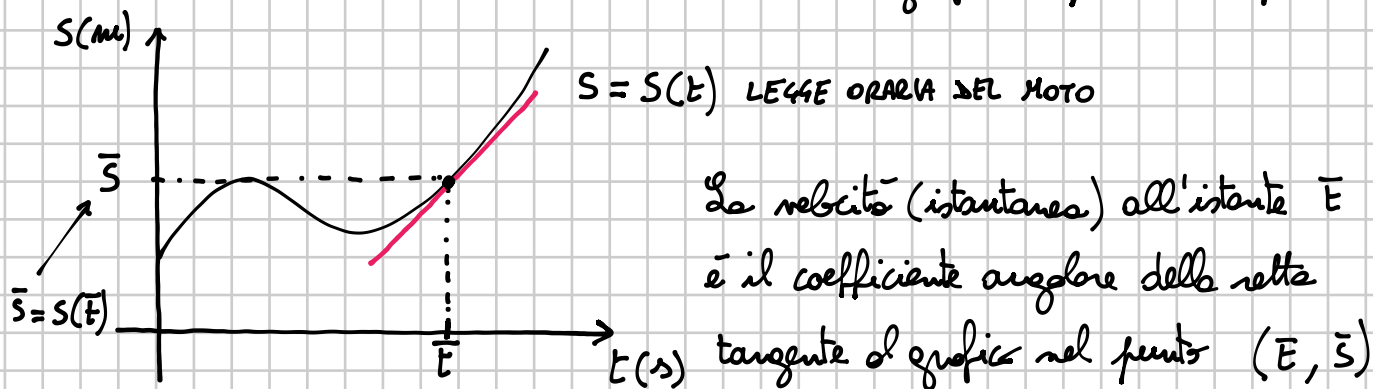 S(m)
S = S(t) LEGGE ORARIA DEL MOTO
S̄
La velocità (istantanea) all'istante t̄
è il coefficiente angolare della retta
S̄ = S(t̄)
t̄
t(s)
tangente al grafico nel punto (t̄, S̄)